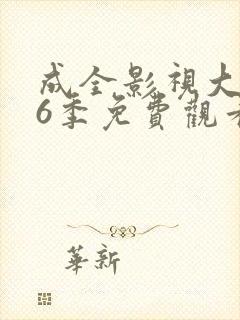 成全影視大
6季免費觀看
華新